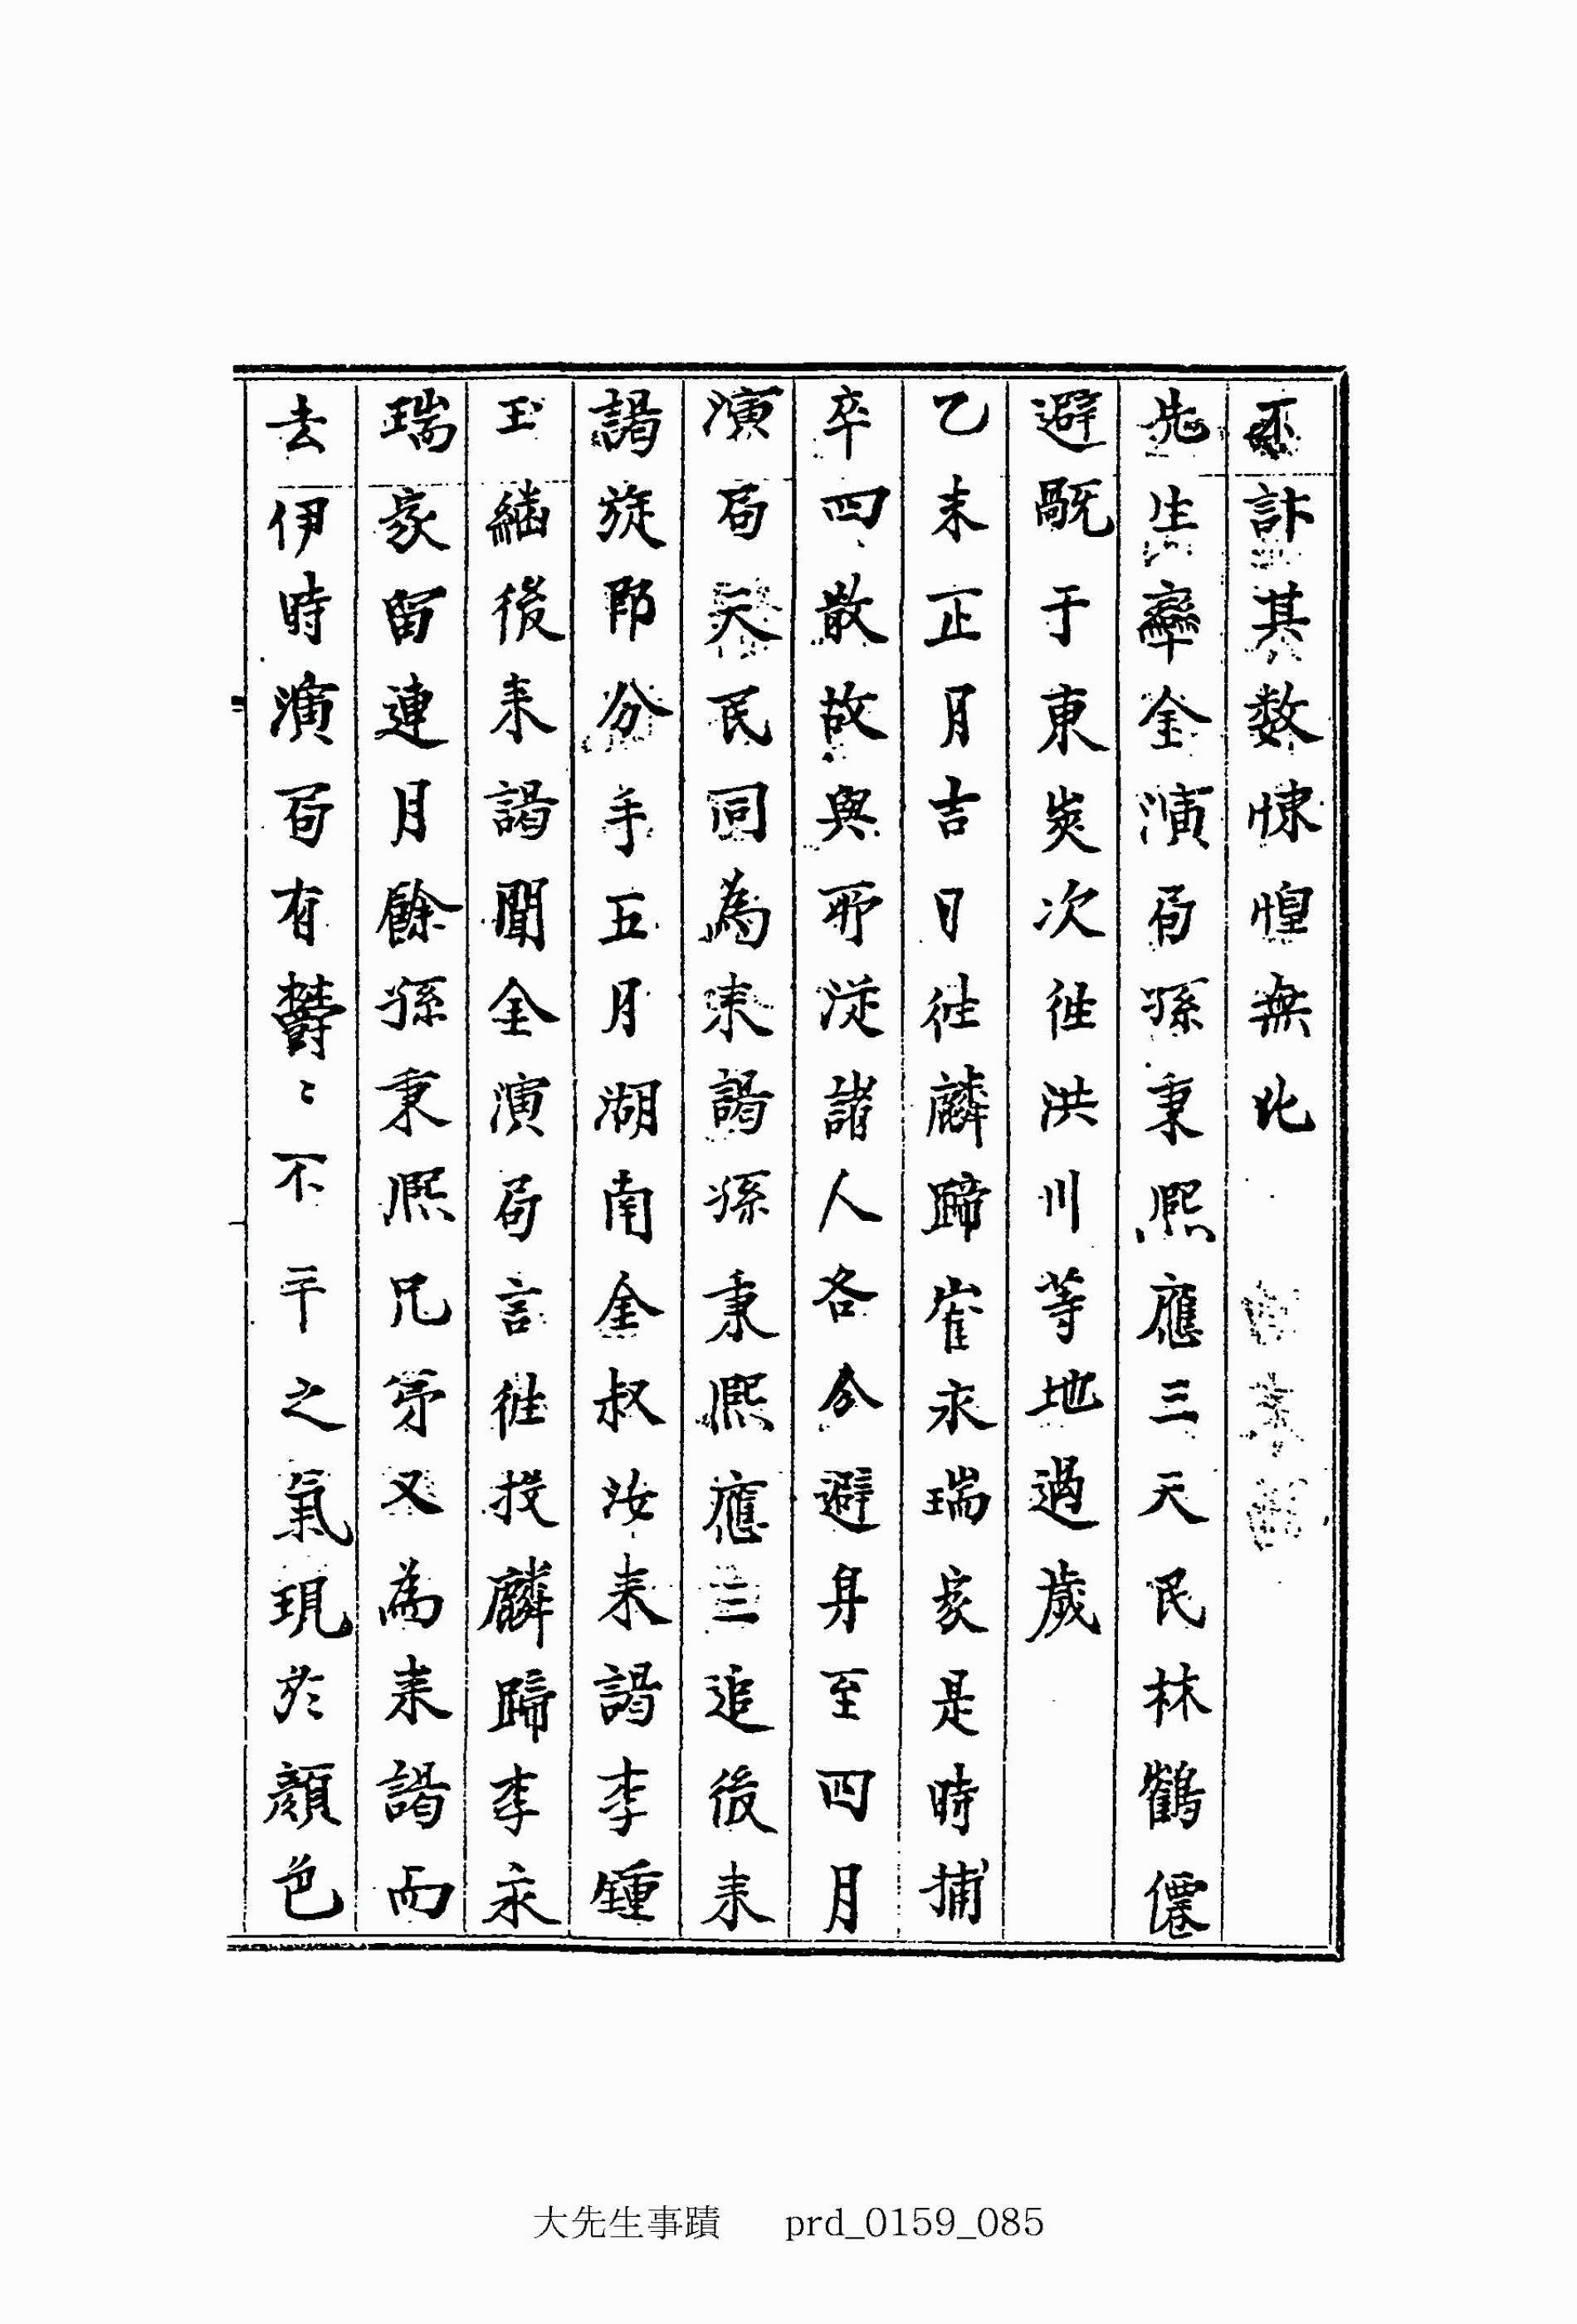 不計其数悚惶無比
先生率金演局孫秉熙應三天民林鶴僊
避厩于東炭次徃洪川等地過歳
乙未正月吉日徃麟蹄崔永瑞家是時捕
卒四散故與所從諸人各各避身至四月
演局天民同為来謁孫秉熙應三追後来
謁旋即分手五月湖南金叔汝来謁李鍾
玉継後来謁聞金演局言徃投麟蹄李永
瑞家留連月餘孫秉熙兄弟又為来謁而
去伊時演局有鬱〻不平之氣現於顔色
大先生事蹟 prd_0159_085